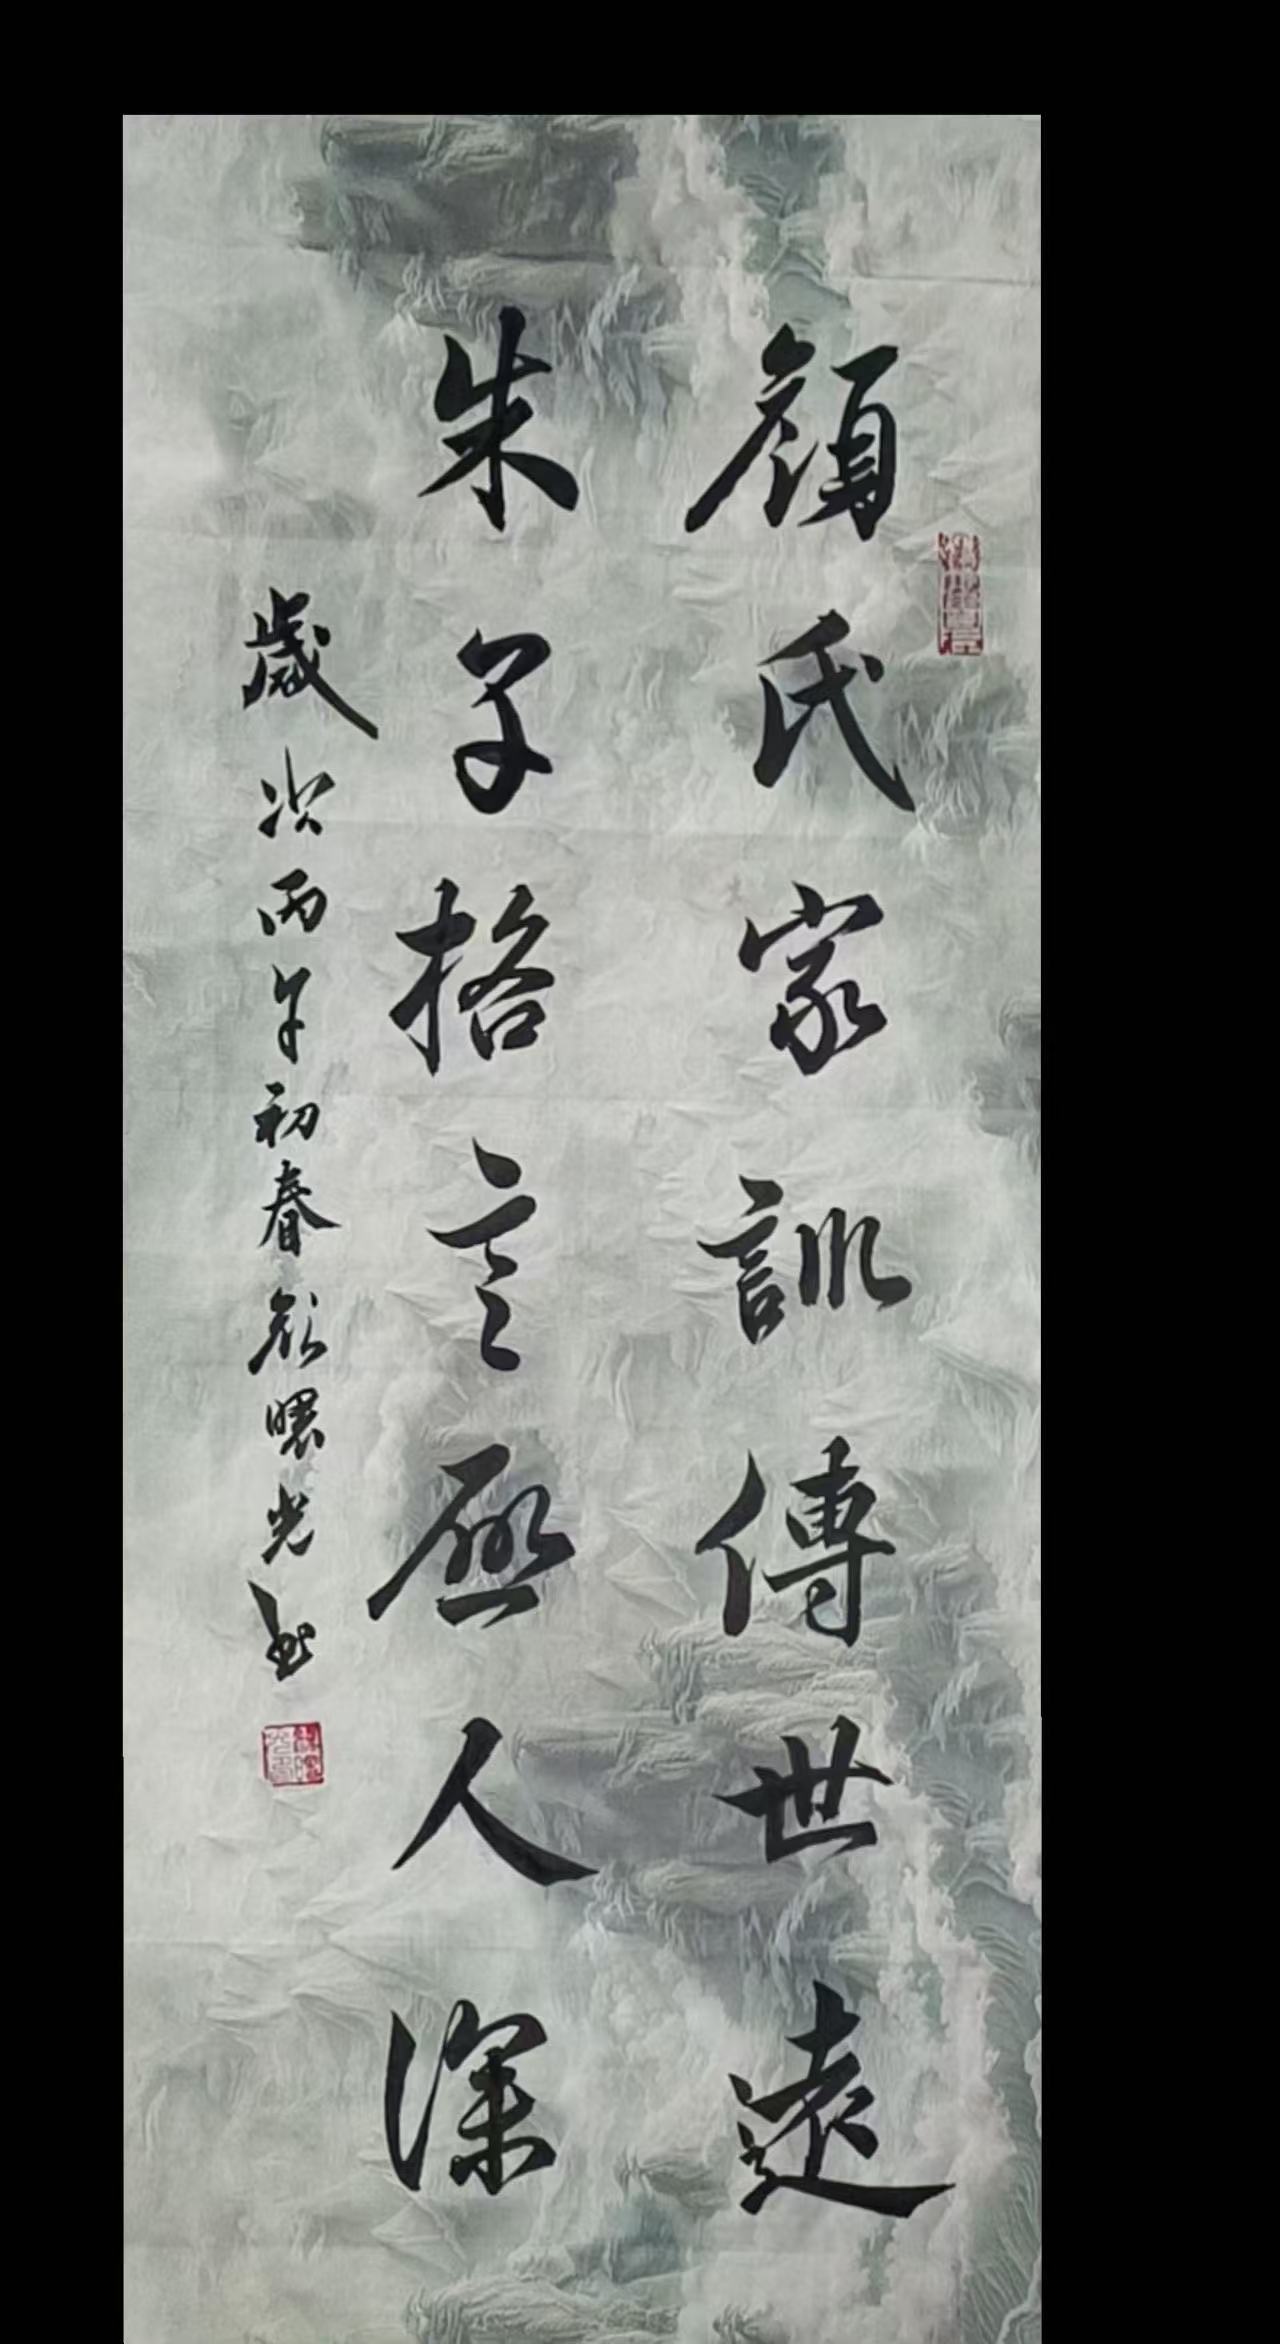 顔氏家訓傳世遠
朱子格言啓人深
歲次丙午初春顔曙光書